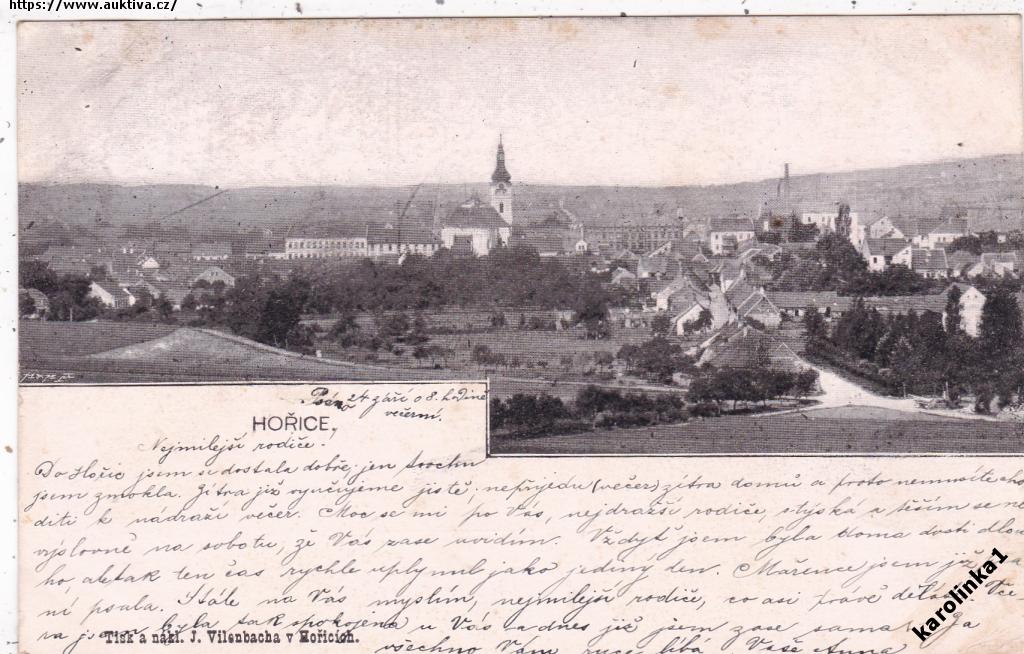 https://www.auktiva.cz/
Psáno 24 září o 8. hodině
večerní.
HOŘICE.
Nejmilejší rodiče!
Do Hořic jsem se dostala dobře, jen trochu
jsem zmokla. Zítra již vyučujeme jistě, nepřijedu (večer) zítra domů a proto nemusíte cho
diti k nádraží večer. Moc se mi po Vás, nejdražší rodiče, stýská a těším se ne
výslovně na sobotu, že Vás zase uvidím. Vždyť jsem byla doma dosti dlou
ho, ale tak ten čas rychle uplynul jako jediný den. Mařence jsem již
ní psala. Stále na Vás myslím, nejmilejší rodiče, co asi právě děláte. Vče
ra jsem byla tak spokojená u Vás a dnes již jsem zase sama. Za
všechno Vám ruce líbá Vaše Anna
Tisk a nákl. J. Vilenbacha v Hořicích.
karolinka1